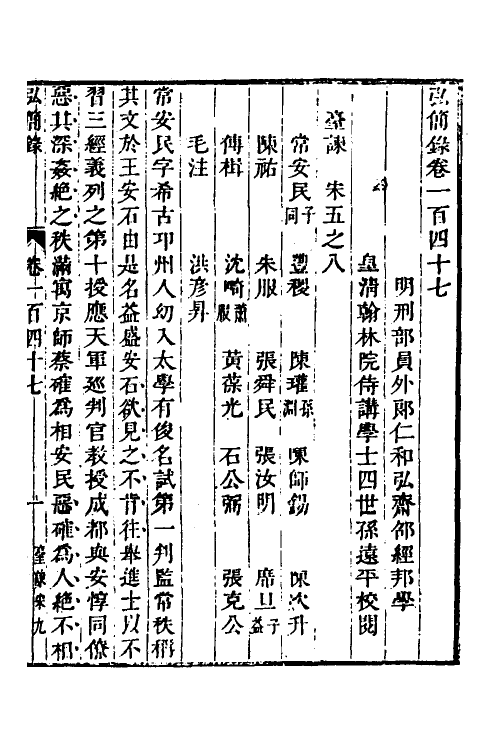 弘簡錄卷一百四十七
明刑部員外郎仁和弘齋邵經邦學
皇清翰林院侍講學士四世孫遠平校閱
臺諫 宋五之八
常安民子同 豐稷 陳瓘孫淵 陳師錫 陳次升
陳祐 朱服 張舜民 張汝明 席旦子益
傅楫 沈畸蕭服 黃葆光 石公弼 張克公
毛注 洪彥昇
常安民字希古邛州人幼入太學有俊名試第一判監常秩稱
其文於王安石由是名益盛安石欲見之不肯往舉進士以不
習三經義列之第十授應天軍廵判官教授成都與安惇同僚
惡其深姦絶之秩滿寓京師蔡確為相安民惡確為人絶不相
弘簡錄 卷一百四十七 一 臺諫宋九